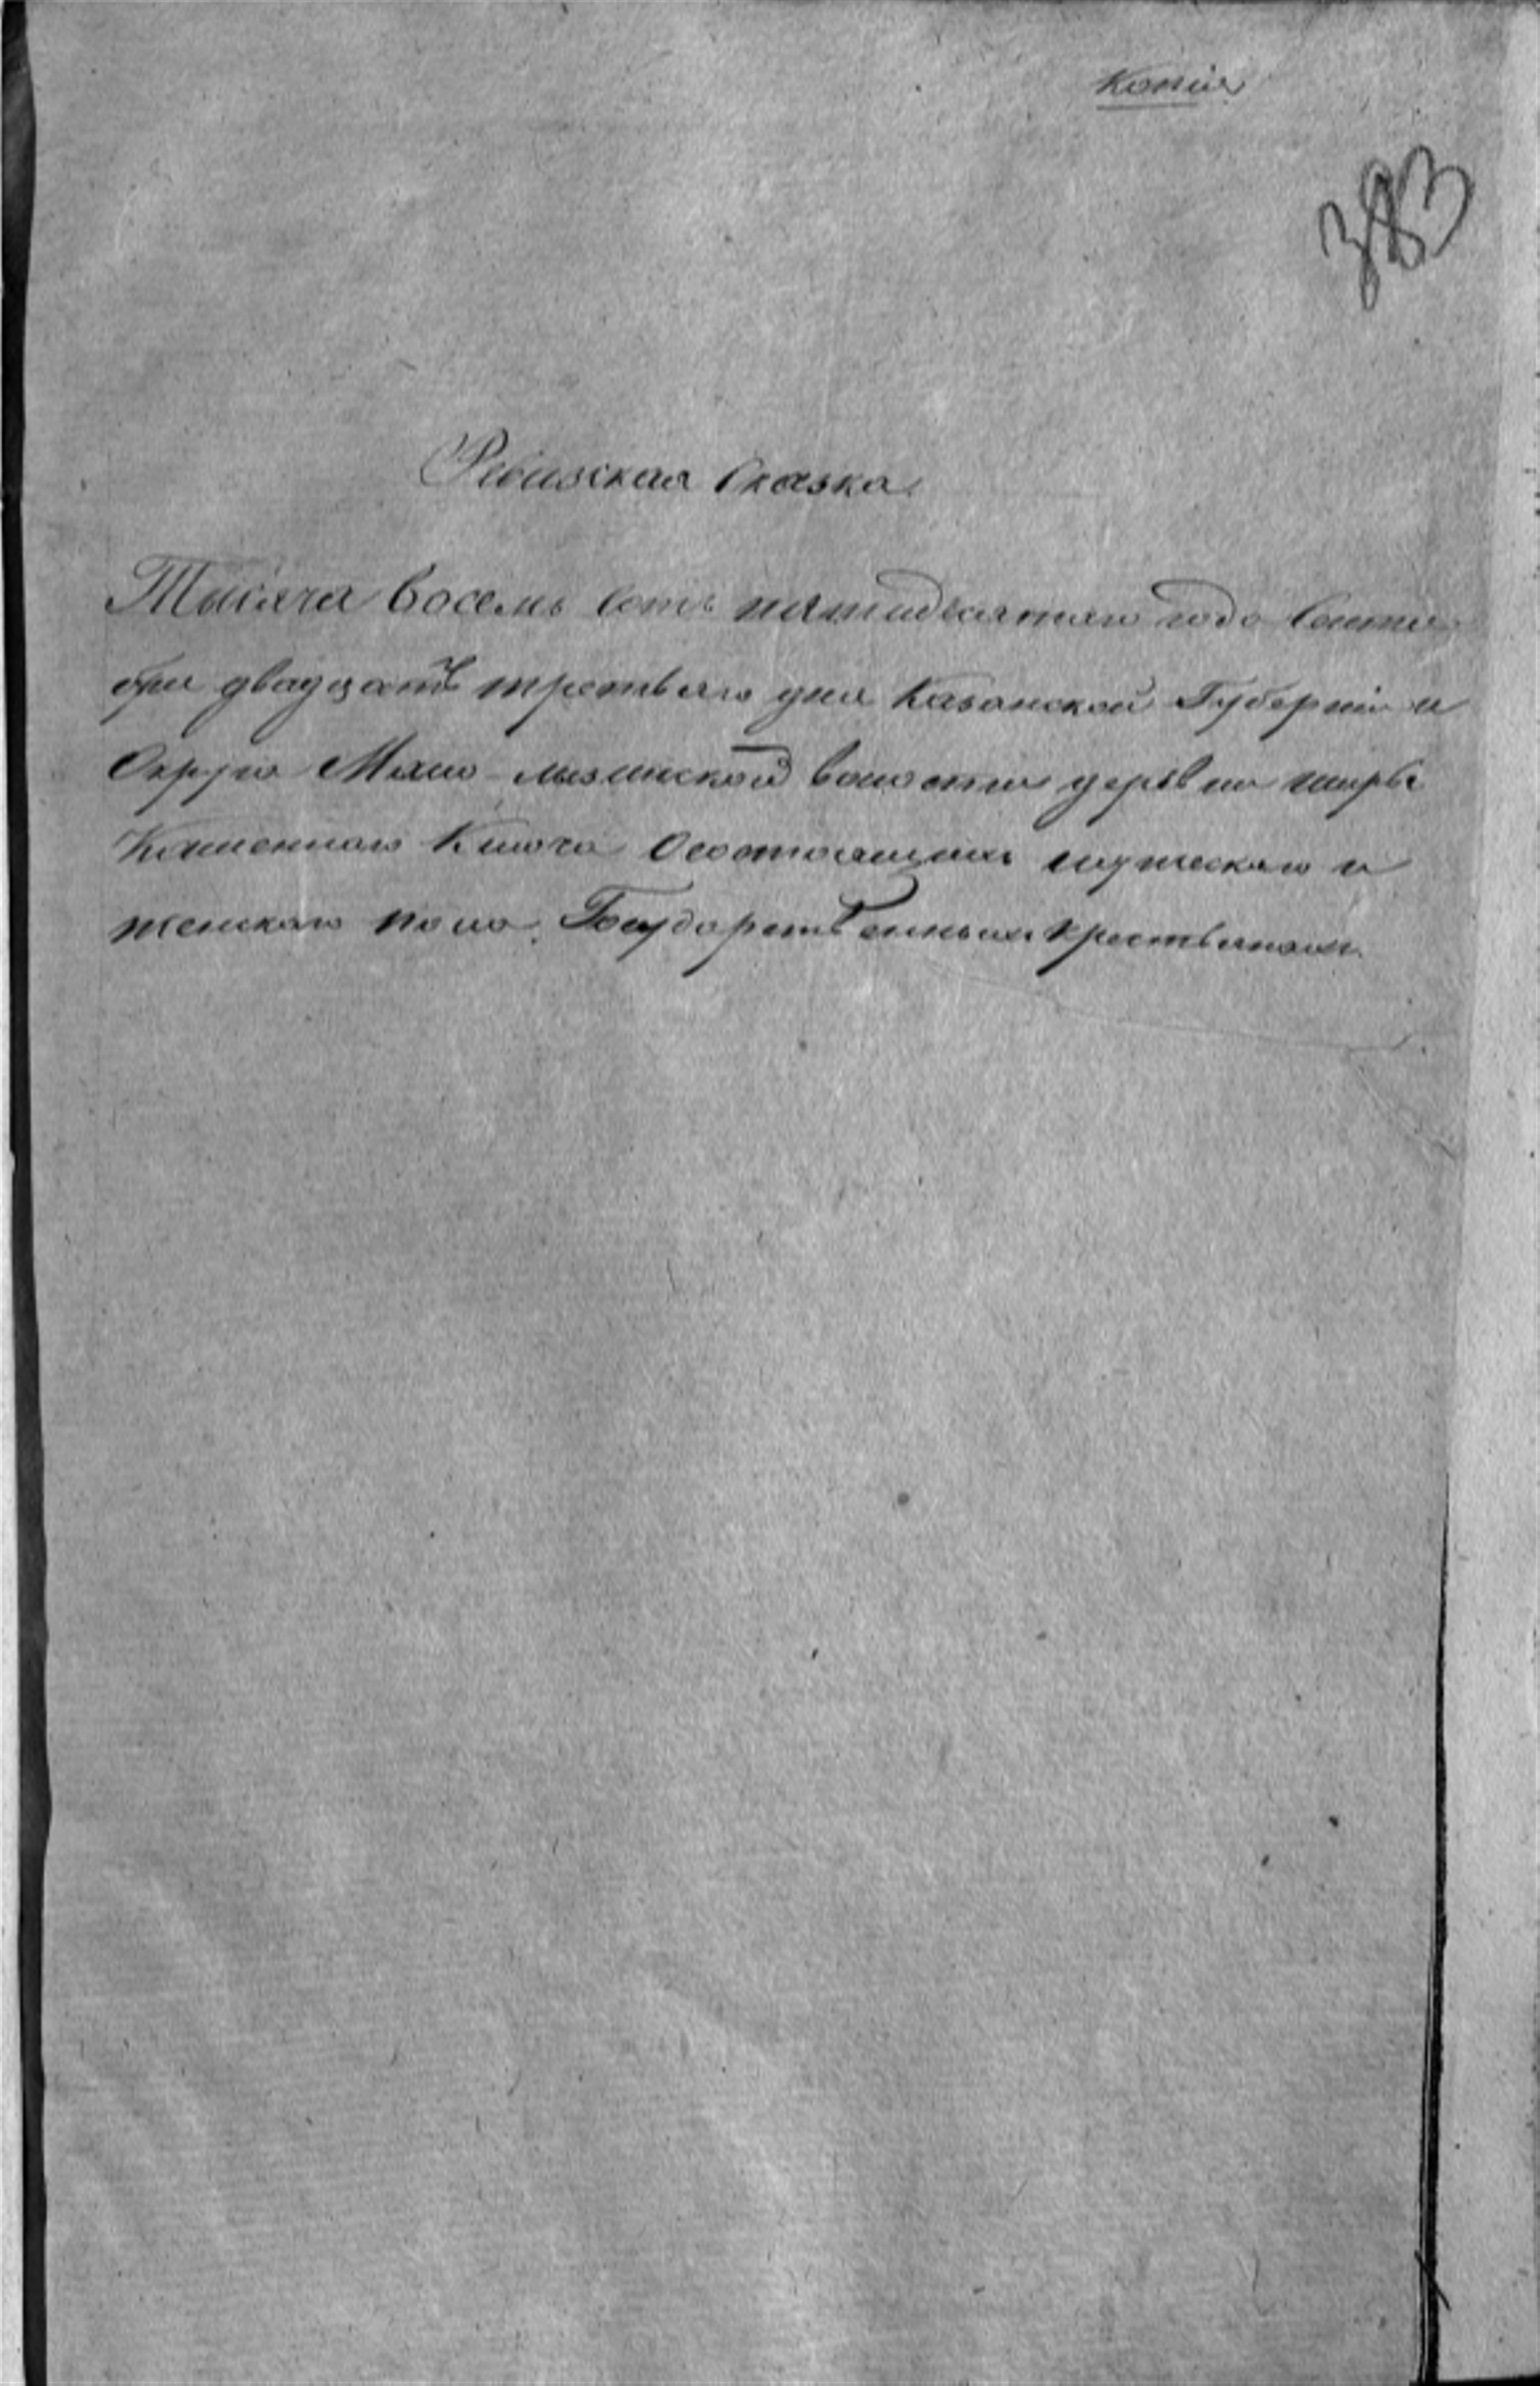 Копія
383
Ревизская Сказка
Тысяча восемь сотъ пятидесятаго года Сентя
бря двадцать третьяго дня Казанской Губерніи и
Округа Мамо-лызинской волости деревни
Каменнаго Ключа О состоящихъ мужескаго и
женскаго пола Государственныхъ крестьянахъ.